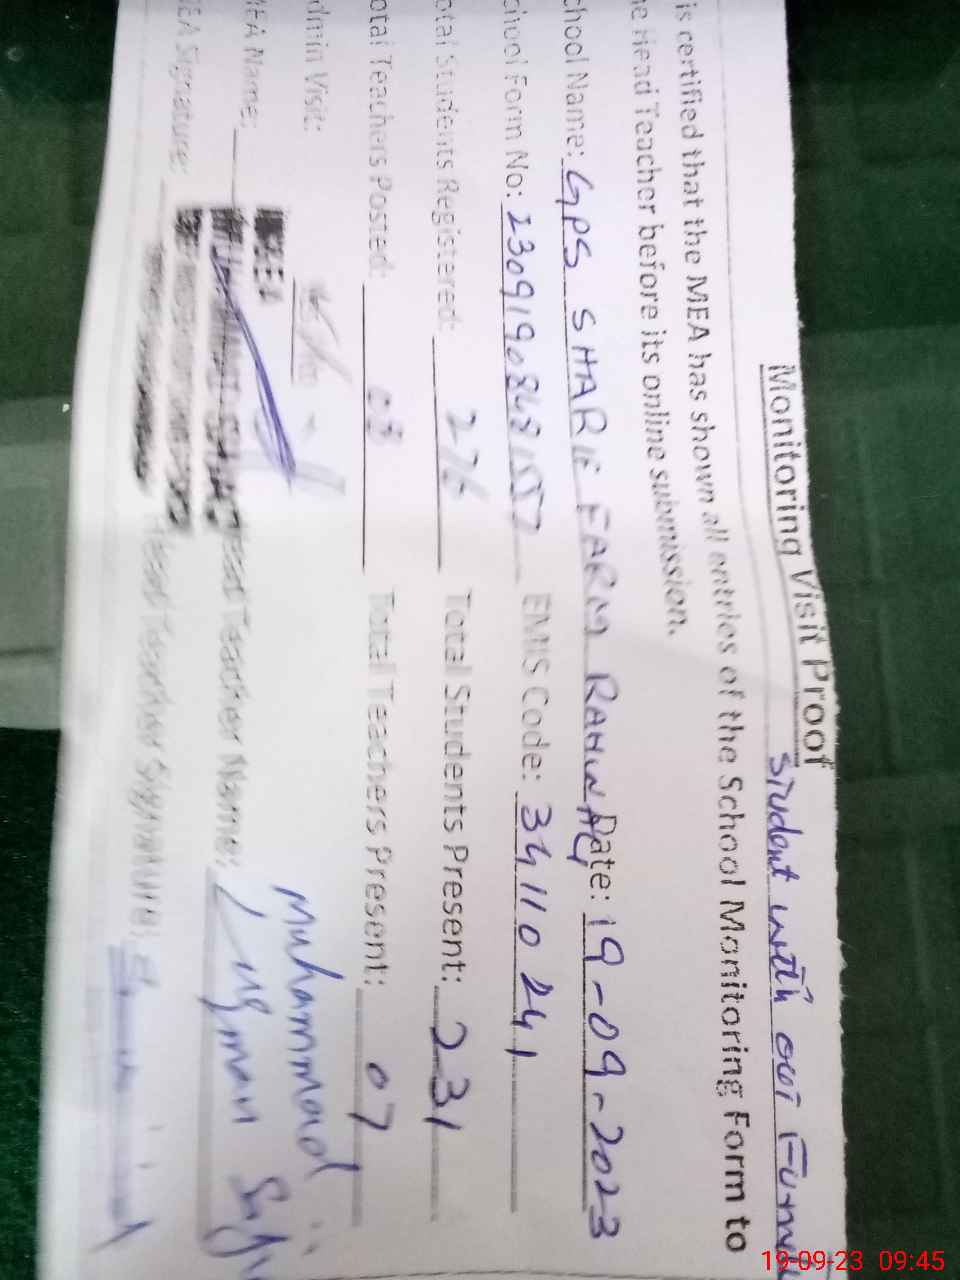 Monitoring Visit Proof
Student with out Furnit
is certified that the MEA has shown all entries of the School Monitoring Form to
he Head Teacher before its online submission.
chool Name: GPS SHARIF FARM RAHIWAL Date: 19-09-2023
chool Form No: EMIS Code: 34110241
otal Students Registered: 276 Total Students Present: 231
otal Teachers Posted: 08 Total Teachers Present: 07
dmin Visit:
MEA Name: Head Teacher Name: Muhammad Luqman
MEA Signature: Head Teacher Signature:
19-09-23 09:45